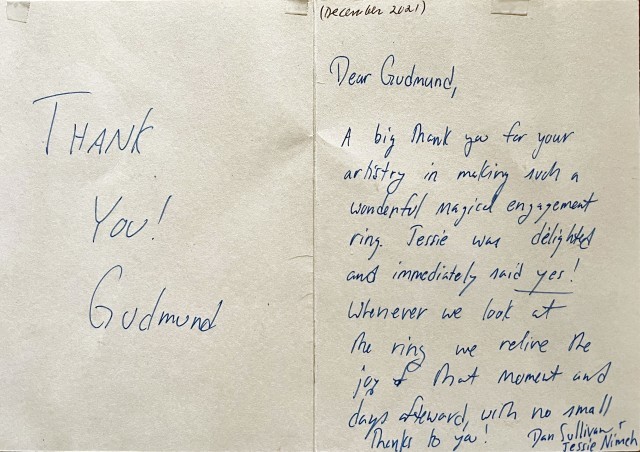 THANK
YOU!
Gudmund
(December 2021)
Dear Gudmund,
A big thank you for your
artistry in making such a
wonderful magical engagement
ring. Jessie was delighted
and immediately said yes!
Whenever we look at
the ring we relive the
joy of that moment and
days afteward, with no small
thanks to you!
Dan Sullivan +
Jessie Nimeh